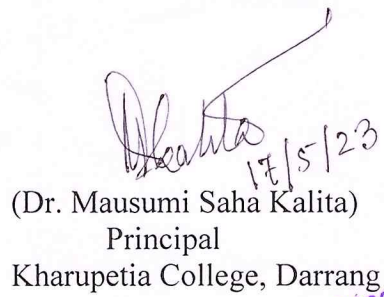 MSKalita
17/5/23
(Dr. Mausumi Saha Kalita)
Principal
Kharupetia College, Darrang